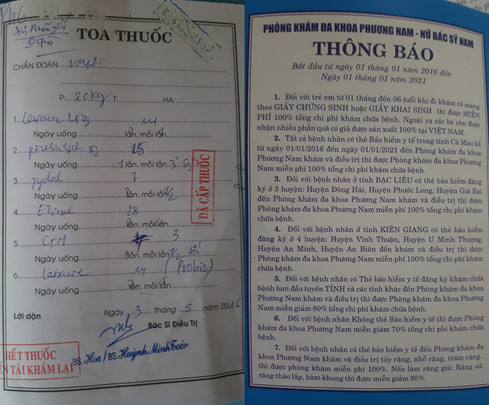 TOA THUỐC
CHẨN ĐOÁN: VMH
P: 20kg T: HA:
1.
Ngày uống lần, mỗi lần
2. 15
Ngày uống 1 lần, mỗi lần 3
3.
Ngày uống lần, mỗi lần
4. 28
Ngày uống lần, mỗi lần
5. CTM 3
Ngày uống lần, mỗi lần
6. (Probio)
Ngày uống lần, mỗi lần
ĐÃ CẤP THUỐC
Lời dặn
Ngày 3 tháng 5 năm 2016
Bác Sĩ Điều Trị
BS. Hoa / BS. Huỳnh Minh Toàn
HẾT THUỐC
ĐẾN TÁI KHÁM LẠI
PHÒNG KHÁM ĐA KHOA PHƯƠNG NAM - NỮ BÁC SỸ NAM
THÔNG BÁO
Bắt đầu từ ngày 01 tháng 01 năm 2016 đến
Ngày 01 tháng 01 năm 2021
1. Đối với trẻ em từ 01 tháng đến 06 tuổi khi đi khám có mang
theo GIẤY CHỨNG SINH hoặc GIẤY KHAI SINH thì được MIỄN
PHÍ 100% tổng chi phí khám chữa bệnh. Ngoài ra các bé còn được
nhận nhiều phần quà có giá được sản xuất 100% tại VIỆT NAM.
2. Tất cả bệnh nhân có thẻ Bảo hiểm y tế trong tỉnh Cà Mau kể
từ ngày 01/01/2016 đến ngày 01/01/2021 đến Phòng khám đa khoa
Phương Nam khám và điều trị thì được Phòng khám đa khoa Phương
Nam miễn phí 100% tổng chi phí khám chữa bệnh.
3. Đối với bệnh nhân ở tỉnh BẠC LIÊU có thẻ bảo hiểm y tế đăng
ký ở 3 huyện: Huyện Đông Hải, Huyện Phước Long, Huyện Giá Rai
đến Phòng khám đa khoa Phương Nam khám và điều trị thì được
Phòng khám đa khoa Phương Nam miễn phí 100% tổng chi phí khám
chữa bệnh.
4. Đối với bệnh nhân ở tỉnh KIÊN GIANG có thẻ bảo hiểm y tế
đăng ký ở 4 huyện: Huyện Vĩnh Thuận, Huyện U Minh Thượng,
Huyện An Minh, Huyện An Biên đến khám và điều trị thì được Phòng
khám đa khoa Phương Nam miễn phí 100% tổng chi phí khám chữa
bệnh.
5. Đối với bệnh nhân có Thẻ bảo hiểm y tế đăng ký khám chữa
bệnh ban đầu tuyến TỈNH và các tỉnh khác đến Phòng khám đa khoa
Phương Nam khám và điều trị thì được Phòng khám đa khoa Phương
Nam miễn giảm 80% tổng chi phí khám chữa bệnh.
6. Đối với bệnh nhân Không thẻ Bảo hiểm y tế thì được Phòng
khám đa khoa Phương Nam miễn giảm 70% tổng chi phí khám chữa
bệnh.
7. Đối với bệnh nhân có thẻ bảo hiểm y tế đến Phòng khám đa
khoa Phương Nam khám và điều trị tủy răng, nhổ răng, trám răng...
thì được phòng khám miễn phí 100%. Nếu làm răng giả: Răng sứ,
răng tháo lắp, hàm khung thì được miễn giảm 95%.